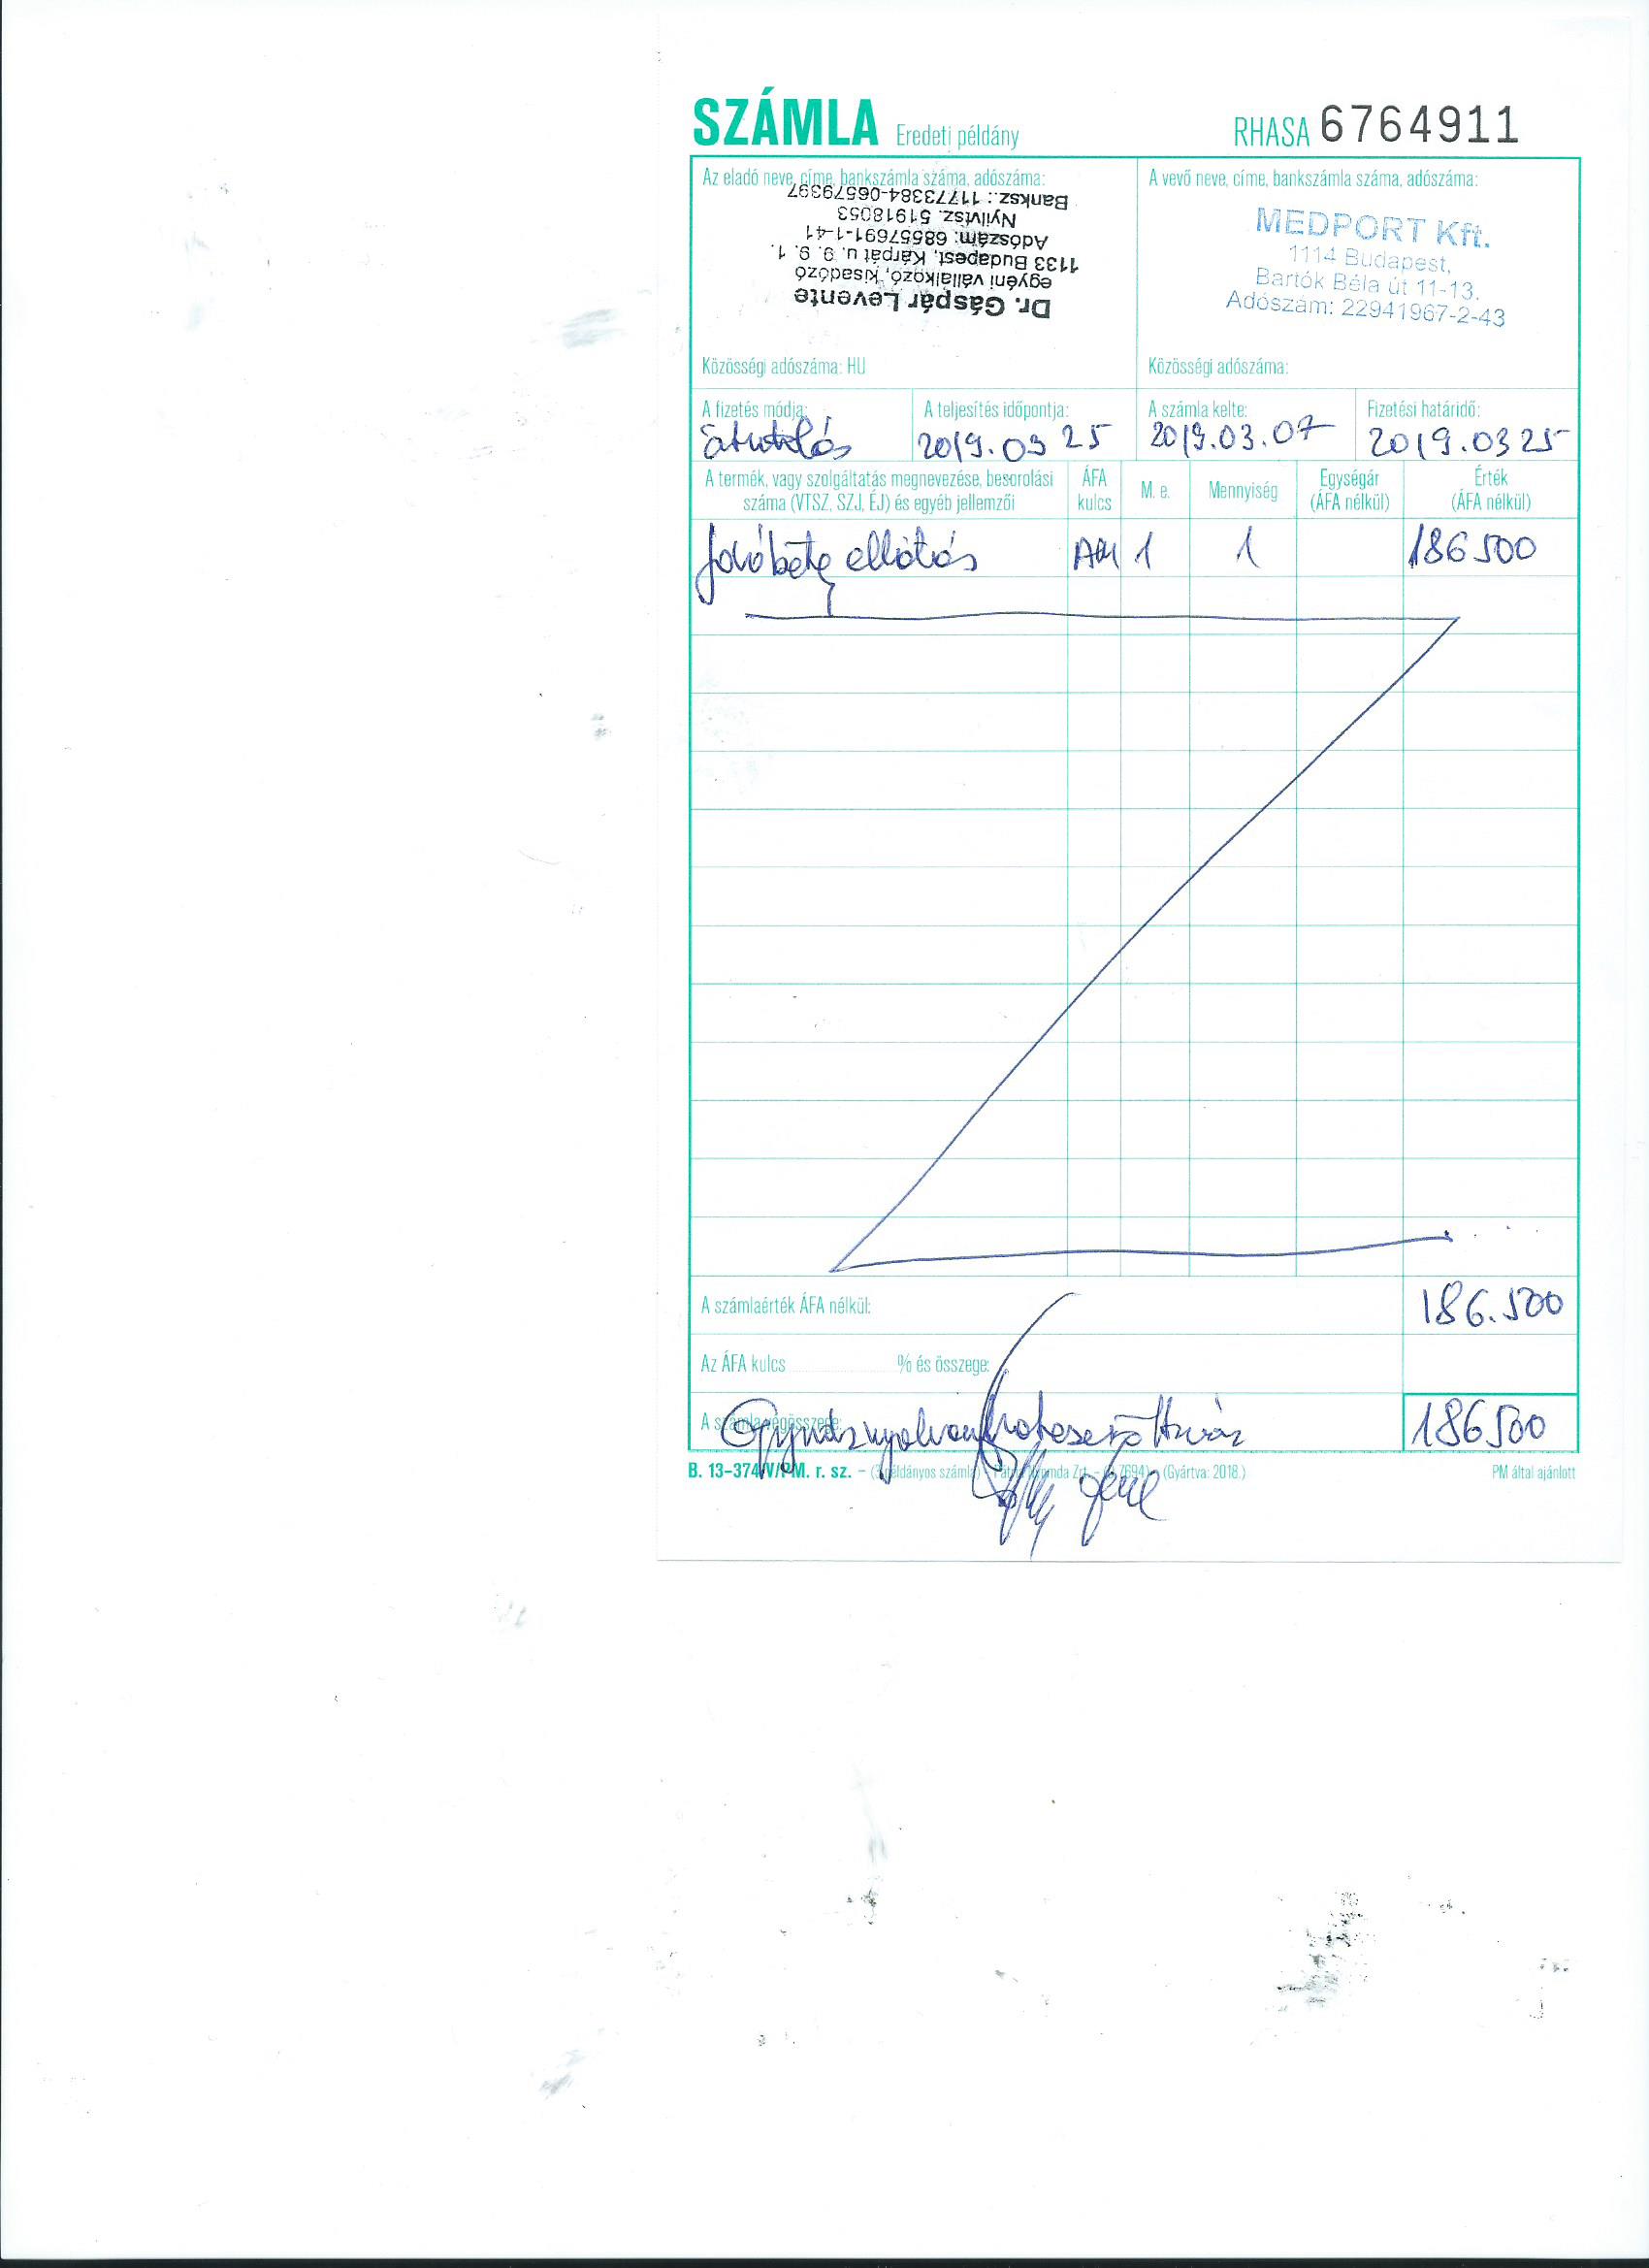 SZÁMLA Eredeti példány RHASA 6764911
Az eladó neve, címe, bankszámla száma, adószáma:
Dr. Gáspár Levente
egyéni vállalkozó, kisadózó
1133 Budapest, Kárpát u. 9. 9. 1.
Adószám: 68557691-1-41
Nyilvtsz. 51918053
Banksz.: 11773384-06579397
Közösségi adószáma: HU
A vevő neve, címe, bankszámla száma, adószáma:
MEDPORT Kft.
1114 Budapest,
Bartók Béla út 11-13.
Adószám: 22941967-2-43
Közösségi adószáma:
A fizetés módja: A teljesítés időpontja: A számla kelte: Fizetési határidő:
átutalás 2019.03 25 2019.03.07 2019.03 25
A termék, vagy szolgáltatás megnevezése, besorolási
száma (VTSZ, SZJ, ÉJ) és egyéb jellemzői
ÁFA
kulcs
M. e.
Mennyiség
Egységár
(ÁFA nélkül)
Érték
(ÁFA nélkül)
járóbeteg ellátás AM 1 1 186 500
A számlaérték ÁFA nélkül: 186.500
Az ÁFA kulcs % és összege:
A számla végösszege: 186500
B. 13-374/V/PM. r. sz. – (Gyártva: 2018.) PM által ajánlott